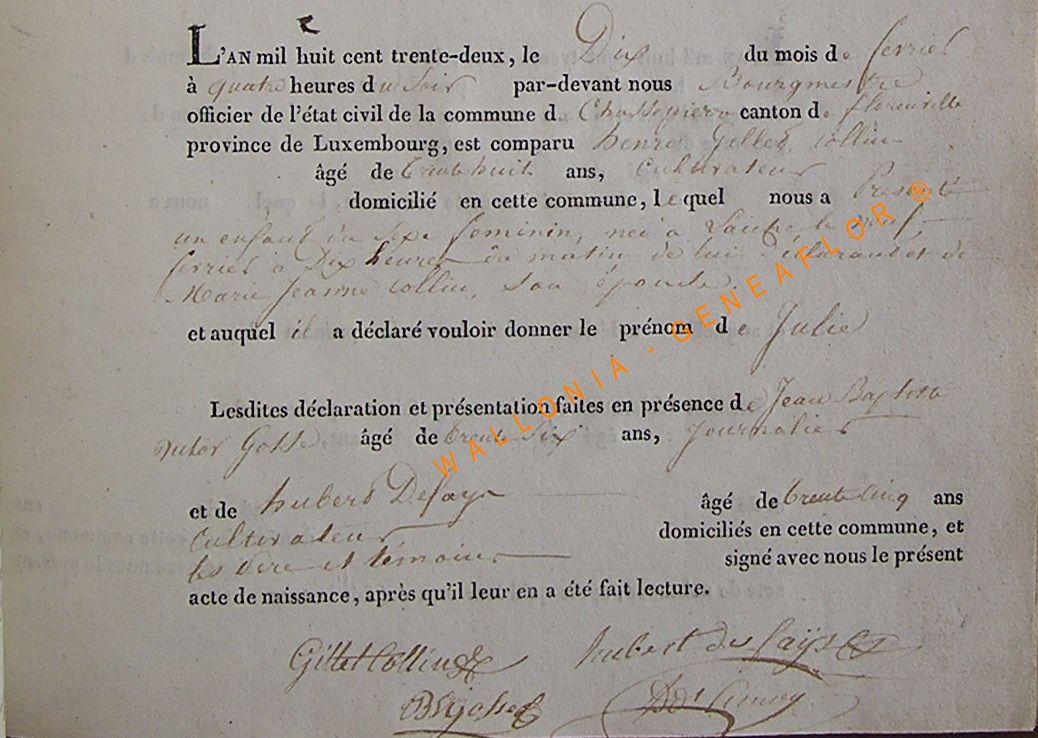 L'AN mil huit cent trente-deux, le Dix du mois de fevrier
à quatre heures du soir par-devant nous Bourgmestre
officier de l'état civil de la commune d. Chassepierre canton de florenville
province de Luxembourg, est comparu henri Gillet Collin
âgé de trente huit ans, Cultivateur
domicilié en cette commune, lequel nous a Presenté
un enfant du sexe feminin, neé a Laiche le neuf
fevrier a Dix heures du matin de lui déclarant et de
Marie Jeanne Collin, son épouse.
et auquel il a déclaré vouloir donner le prénom de Julie
Lesdites déclaration et présentation faites en présence de Jean Baptiste
Gosse âgé de trente Six ans, Journalier
et de hubert Defays âgé de trente Cinq ans
Cultivateur domiciliés en cette commune, et
les Pere et témoins signé avec nous le présent
acte de naissance, après qu'il leur en a été fait lecture.
Gillet Collin hubert de fays
WALLONIA - GENEAFLOR ©